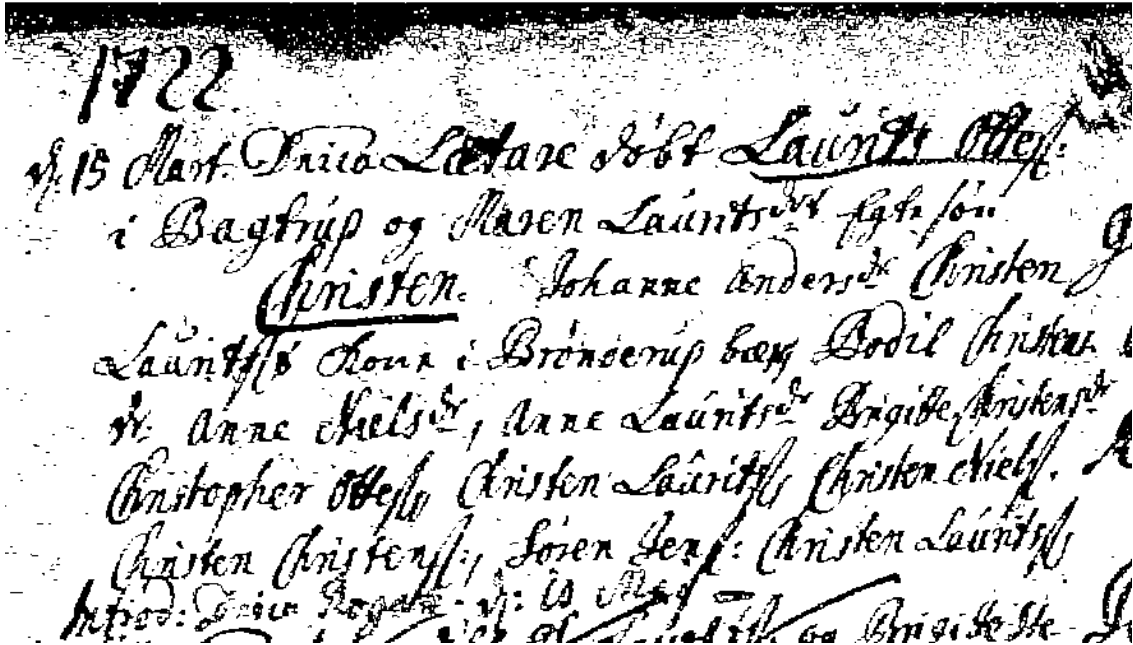 1722.
d. 15 Mart. Dnica Lætare döbt Laurits Ottess:
i Bagtrup og Maren Lauritsdr Egte sön
Christen. Johanne Andersdr Christen
Lauritss's Kone i Brönderup bar, Bodil Christens
dr. Anne Nielsdr, Anne Lauritsdr Brigitte Christensdr
Christopher Ottess, Christen Lauritss, Christen Nielss.
Christen Christenss:, Sören Jenss: Christen Lauritss
Introd: Dnica Rogate. d: 10 Maij
og